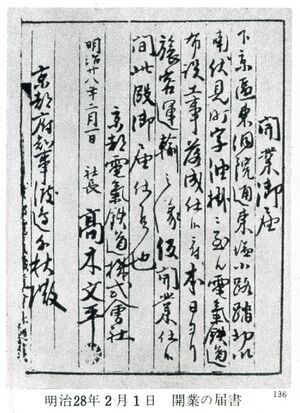 開業御届
下京區東洞院通東塩小路踏切以
南伏見町字油掛ニ至ル電氣鉄道
布設工事落成仕候ニ付本日ヨリ
旅客運輸之義仮開業仕候
間此段御届仕候也
京都電氣鉄道株式會社
明治廿八年二月一日 社長 高木文平
京都府知事渡辺千秋殿
136
明治28年2月1日 開業の届書